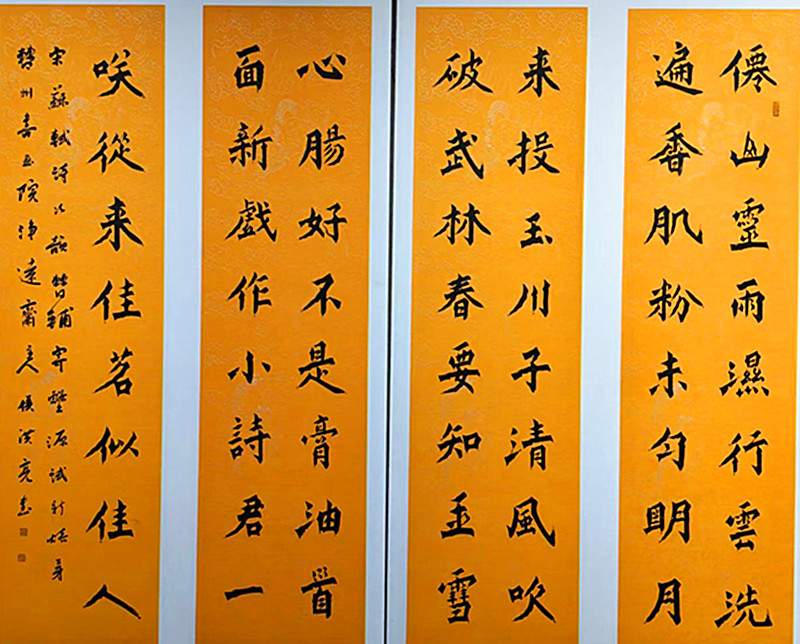 僊山靈雨濕行雲洗
遍香肌粉未匀眀月
来投玉川子清風吹
破武林春要知玉雪
心腸好不是膏油首
面新戲作小詩君一
咲從来佳茗似佳人
宋蘇軾詩次韻曹輔寄壑源試新焙芽
州書画院淨遠齋主人侯洪亮書